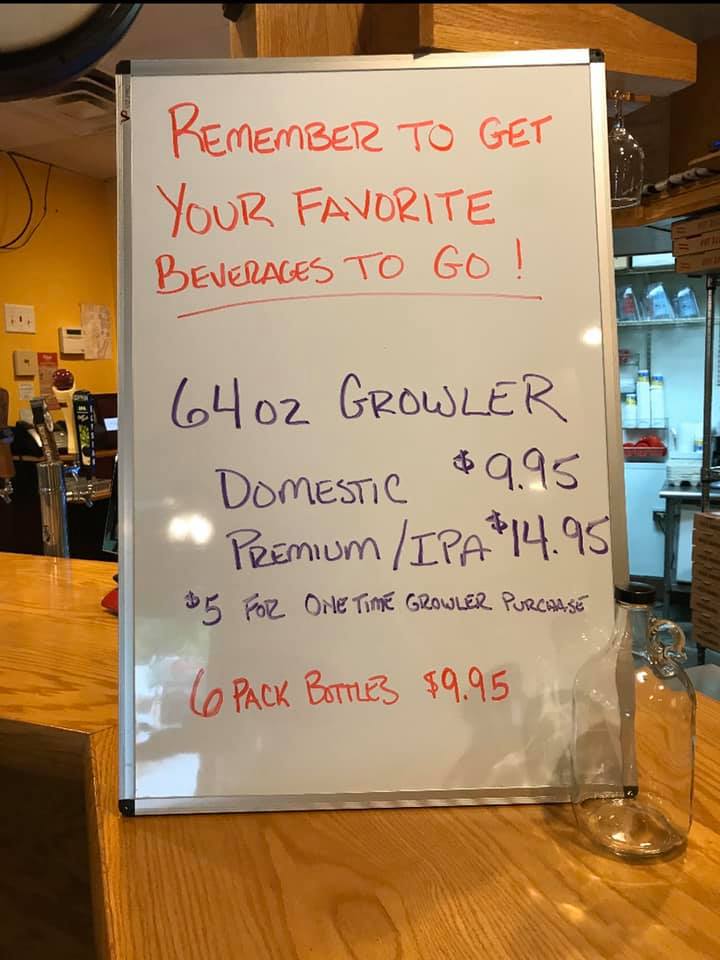 REMEMBER TO GET
YOUR FAVORITE
BEVERAGES TO GO!
64 OZ GROWLER
DOMESTIC $9.95
PREMIUM/IPA $14.95
$5 FOR ONE TIME GROWLER PURCHASE
6 PACK BOTTLES $9.95